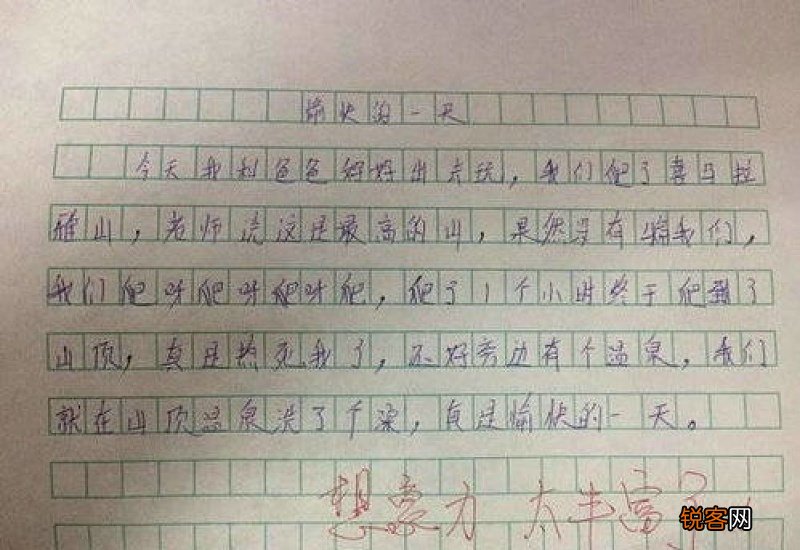 愉快的一天
今天我和爸爸妈妈出去玩，我们爬了喜马拉
雅山，老师说这是最高的山，果然没有骗我们，
我们爬呀爬呀爬呀爬，爬了1个小时终于爬到了
山顶，真是热死我了，还好旁边有个温泉，我们
就在山顶温泉洗了个澡，真是愉快的一天。
想象力 太丰富了！
锐客网